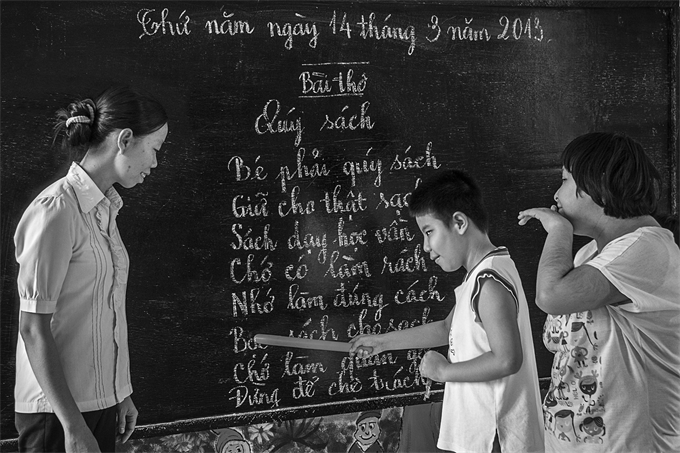 Thứ năm ngày 14 tháng 3 năm 2013.
Bài thơ
Quý sách
Bé phải quý sách
Giữ cho thật sạch
Sách dạy học vần
Chớ có làm rách
Nhớ làm đúng cách
Bọc sách cho sạch
Chớ làm quăn
Đừng để chê trách